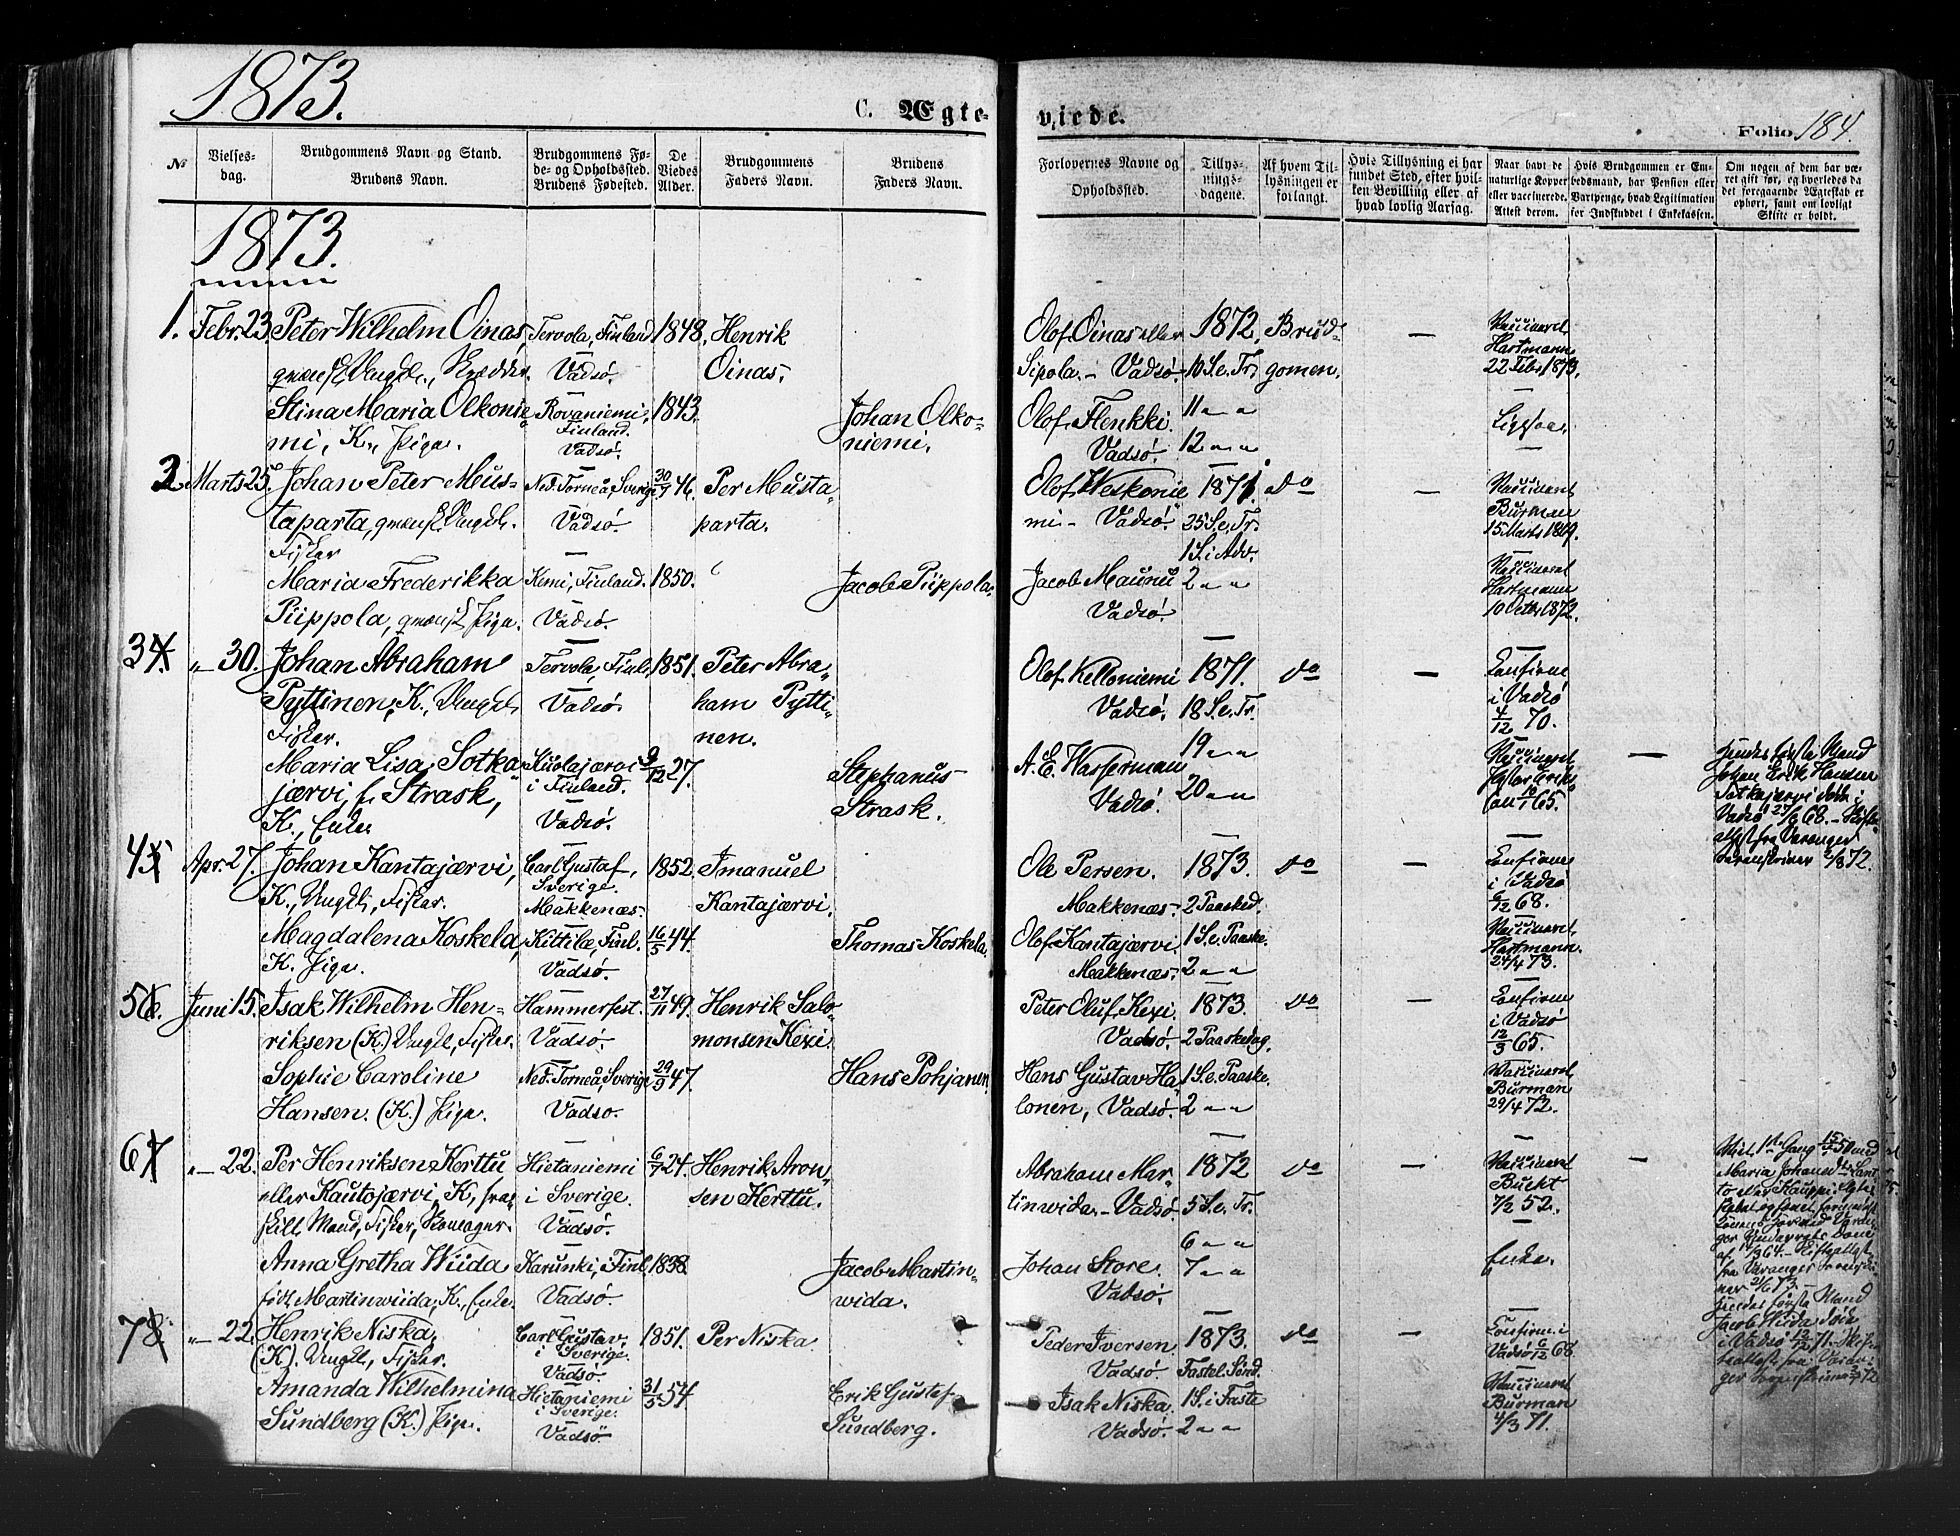 1873.
C. Ægte-
viede.
Folio 184.
№
Vielses-
dag.
Brudgommens Navn og Stand.
Brudens Navn.
Brudgommens Fø-
de- og Opholdssted.
Brudens Fødested.
De
Viedes
Alder.
Brudgommens
Faders Navn.
Brudens
Faders Navn.
Forlovernes Navne og
Opholdssted.
Tillys-
nings-
dagene.
Af hvem Til-
lysningen er
forlangt.
Hvis Tillysning ei har
fundet Sted, efter hvil-
ken Bevilling eller af
hvad lovlig Aarsag.
Naar havt de
naturlige Kopper
eller vaccinerede.
Attest derom.
Hvis Brudgommen er Em-
bedsmand, har Pension eller
Vartpenge, hvad Legitimation
for Indskuddet i Enkekassen.
Om nogen af dem har væ-
ret gift før, og hvorledes da
det foregaaende Ægteskab er
ophørt, samt om lovligt
Skifte er holdt.
1873.
1. Febr. 23. Peter Wilhelm Oinas, Tervola, Finland 1848. Henrik
qvænsk Ungk., Skrædder. Vadsø. Oinas.
Olof Oinas eller 1872, Brud- — Vaccineret
Sipola. - Vadsø. 10 S. e. Tr. gomen. Hartmann
22 Feb. 1873.
Stina Maria Olkonie- Rovaniemi, 1843. Johan Olko-
mi, K., Pige. Finland. niemi.
Vadsø.
Olof Flenkki. 11 " "
Vadsø. 12 " "
2 Marts 25. Johan Peter Mus- Ned. Torneå, Sverige 30/9 46. Per Musta-
taparta, qvænsk Ungk. Vadsø. parta.
Fisker
Olof Weskonie 1871. do — Vaccineret
mi - Vadsø. 25 S. e. Tr. Burman
1 S. i Adv. 15 Marts 1869.
Maria Frederikka Kemi, Finland. 1850. Jacob Piippola.
Piippola, qvænsk Pige. Vadsø.
Jacob Maunu 2 " " Vaccineret
Vadsø. Hartmann
10 Octbr. 1872.
34. " 30. Johan Abraham Tervola, Finl. 1851. Peter Abra-
Pyttinen, K., Ungk. Vadsø. ham Pytti-
Fisker. nen.
Olof Kelloniemi 1871. do — Confirm.
Vadsø. 18 S. e. Tr. i Vadsø
4/12 70.
Maria Lisa Sotka- Kuolajærvi 9/12 27. Stephanus
jærvi, f. Strask, i Finland. Strask.
K., Enke Vadsø.
A. E. Hasserman 19 " " Vaccineret —
Vadsø. 20 " " 65.
Hendes første Mand
Johan Erik Hansen
Sotkajærvi døde i
Vadsø 27/9 68. - Skifte-
attest fra Varanger
Sorenskriver 2/8 72.
45 Apr. 27. Johan Kantajærvi, Carl Gustaf, 1852. Imanuel
K., Ungk., Fisker. Sverige. Kantajærvi.
Makkenæs.
Ole Persen. 1873. do — Confirm.
Makkenæs. 2 Paasked. i Vadsø
6/12 68.
Magdalena Koskela, Kittilæ, Finl. 16/5 44. Thomas Koskela.
K. Pige. Vadsø.
Olof Kantajærvi. 1 S. e. Paaske. Vaccineret
Makkenæs. 2 " " Hartmann.
24/4 73.
56. Juni 15. Isak Wilhelm Hen- Hammerfest. 27/11 49. Henrik Salo-
riksen (K.) Ungk., Fisker. Vadsø. monsen Kexi.
Peter Oluf Kexi. 1873. do — Confirm
Vadsø. 2 Paaskedag. i Vadsø
12/3 65.
Sophie Caroline Ned. Torneå, Sverige 29/9 47. Hans Pohjanen
Hansen. (K.) Pige. Vadsø.
Hans Gustav Ha- 1 S. e. Paaske. Vaccineret
lonen, Vadsø. 2 " " Burman
29/4 72.
67 " 22. Per Henriksen Kerttu Hietaniemi 6/7 24. Henrik Aron-
eller Kautojærvi, K., fra- i Sverige. sen Kerttu.
skilt Mand, Fisker, Skomager. Vadsø.
Abraham Mar- 1872 do — Vaccineret —
tinwida. - Vadsø. 5 S. e. Tr. Bucht
6 " " 7/2 52.
Anna Gretha Wiida Karunki, i Finl. 1838. Jacob Martin-
født Martinwiida, K., Enke. Vadsø. wida.
Johan Store. 7 " " Enke.
Vadsø.
Viet 1ste Gang 15/4 50 med
Maria Johans
Hendes første Mand
Jacob Wiida døde
i Vadsø
78. " 22. Henrik Niska, Carl Gustav 1851. Per Niska.
(K). Ungk., Fisker. i Sverige.
Vadsø.
Peder Iversen 1873. do — Confirm. i
Vadsø. Fastel. Sønd. Vadsø 6/12 68
Amanda Wilhelmina Hietaniemi 31/5 54 Erik Gustaf
Sundberg (K.) Pige. i Sverige. Sundberg.
Vadsø.
Isak Niska. 1 S. i Faste Vaccineret
Vadsø. 2 " " Burman
4/3 71.